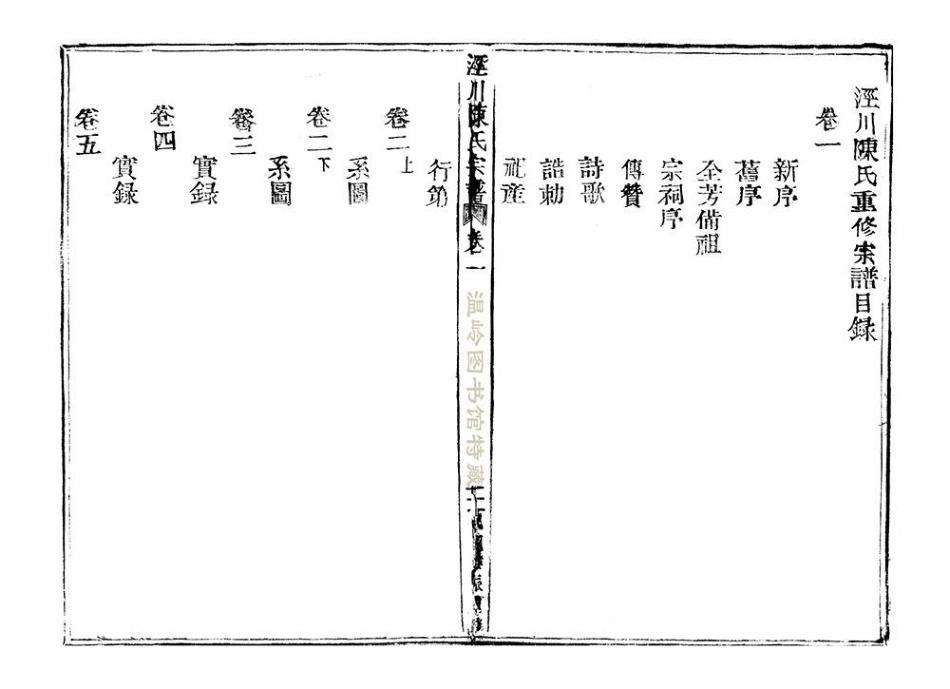 涇川陳氏重修宗譜目録
卷一
新序
舊序
全芳備祖
宗祠序
傳贊
詩歌
誥勅
祀產
涇川陳氏宗譜
卷一
温岭图书馆特藏
行第
卷二上
系圖
卷二下
系圖
卷三
實録
卷四
實録
卷五